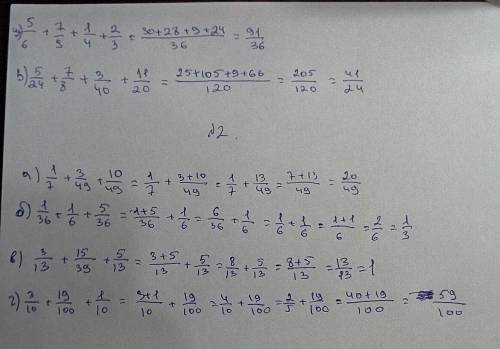 г) 5/6 + 7/9 + 1/4 + 2/3 = 30+28+9+24/36 = 91/36
в) 5/24 + 7/8 + 3/40 + 11/20 = 25+105+9+66/120 = 205/120 = 41/24
№2.
а) 1/7 + 3/49 + 10/49 = 1/7 + 3+10/49 = 1/7 + 13/49 = 7+13/49 = 20/49
б) 1/36 + 1/6 + 5/36 = 1+5/36 + 1/6 = 6/36 + 1/6 = 1/6 + 1/6 = 1+1/6 = 2/6 = 1/3
в) 3/13 + 15/39 + 5/13 = 3+5/13 + 5/13 = 8/13 + 5/13 = 8+5/13 = 13/13 = 1
г) 3/10 + 19/100 + 1/10 = 3+1/10 + 19/100 = 4/10 + 19/100 = 2/5 + 19/100 = 40+19/100 = 59/100